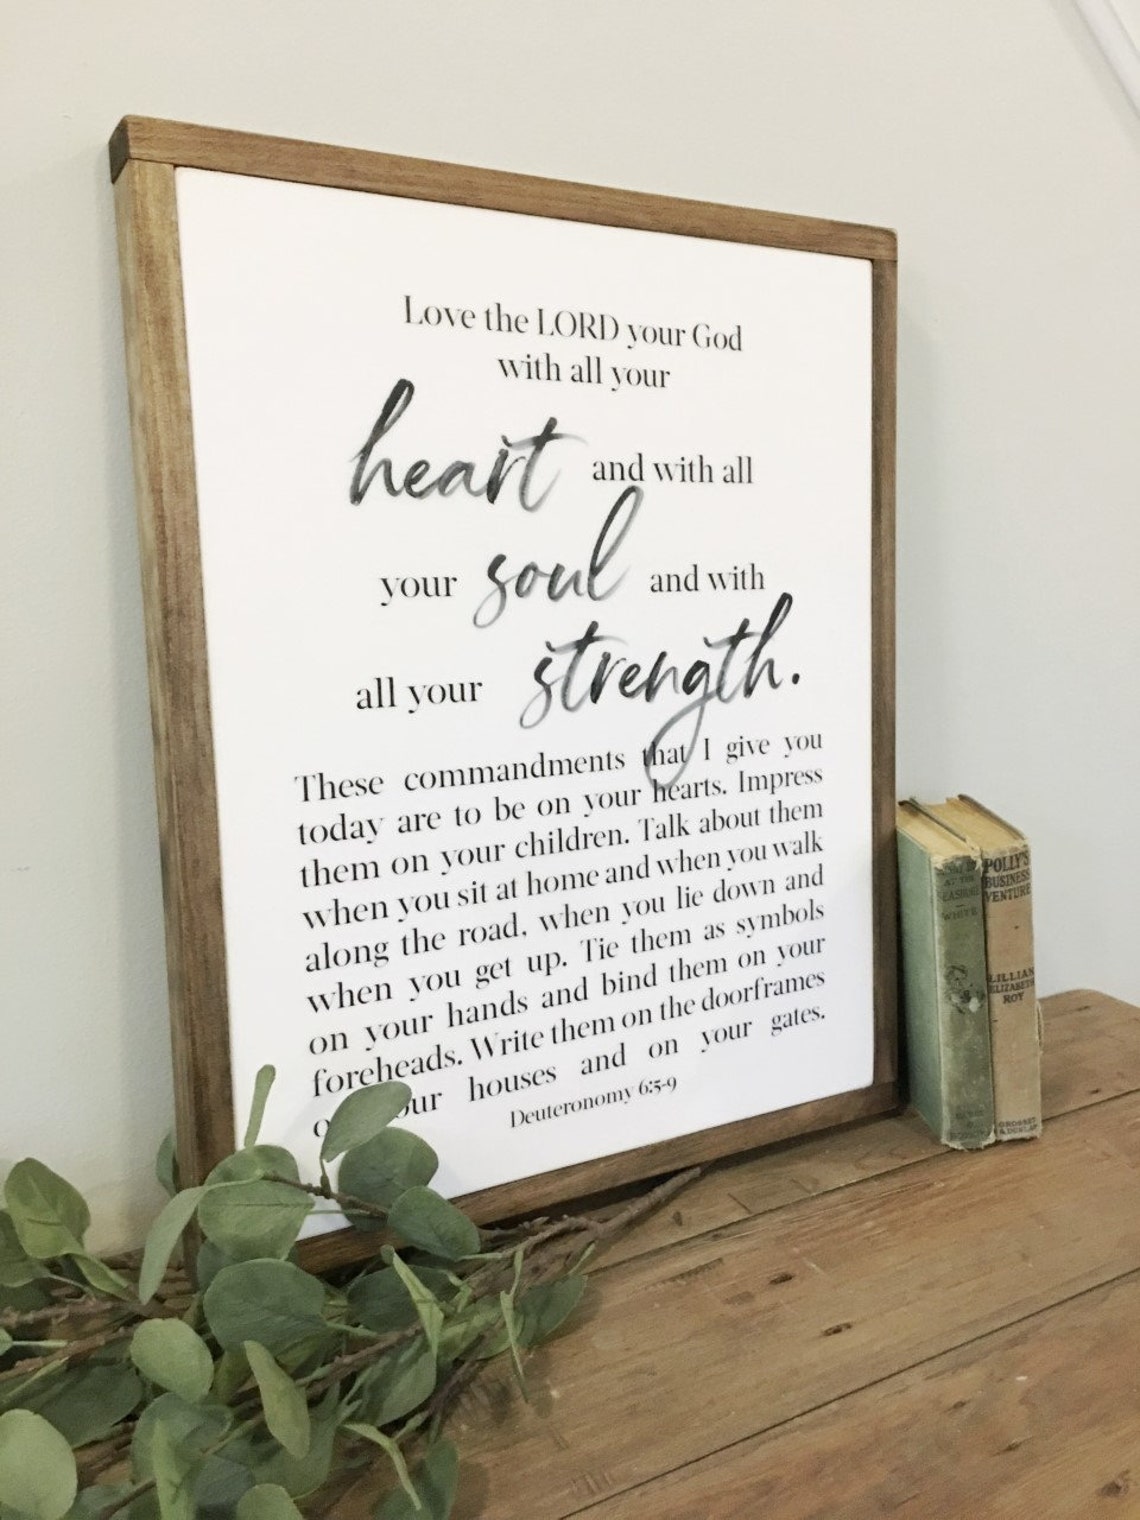 Love the LORD your God
with all your
heart and with all
your soul and with
all your strength.
These commandments that I give you
today are to be on your hearts. Impress
them on your children. Talk about them
when you sit at home and when you walk
along the road, when you lie down and
when you get up. Tie them as symbols
on your hands and bind them on your
foreheads. Write them on the doorframes
your houses and on your gates.
Deuteronomy 6:5-9
AT THE
SEASHORE
WHITE
POLLY'S
BUSINESS
VENTURE
LILLIAN
ELIZABETH
ROY
GROSSET
& DUNLAP